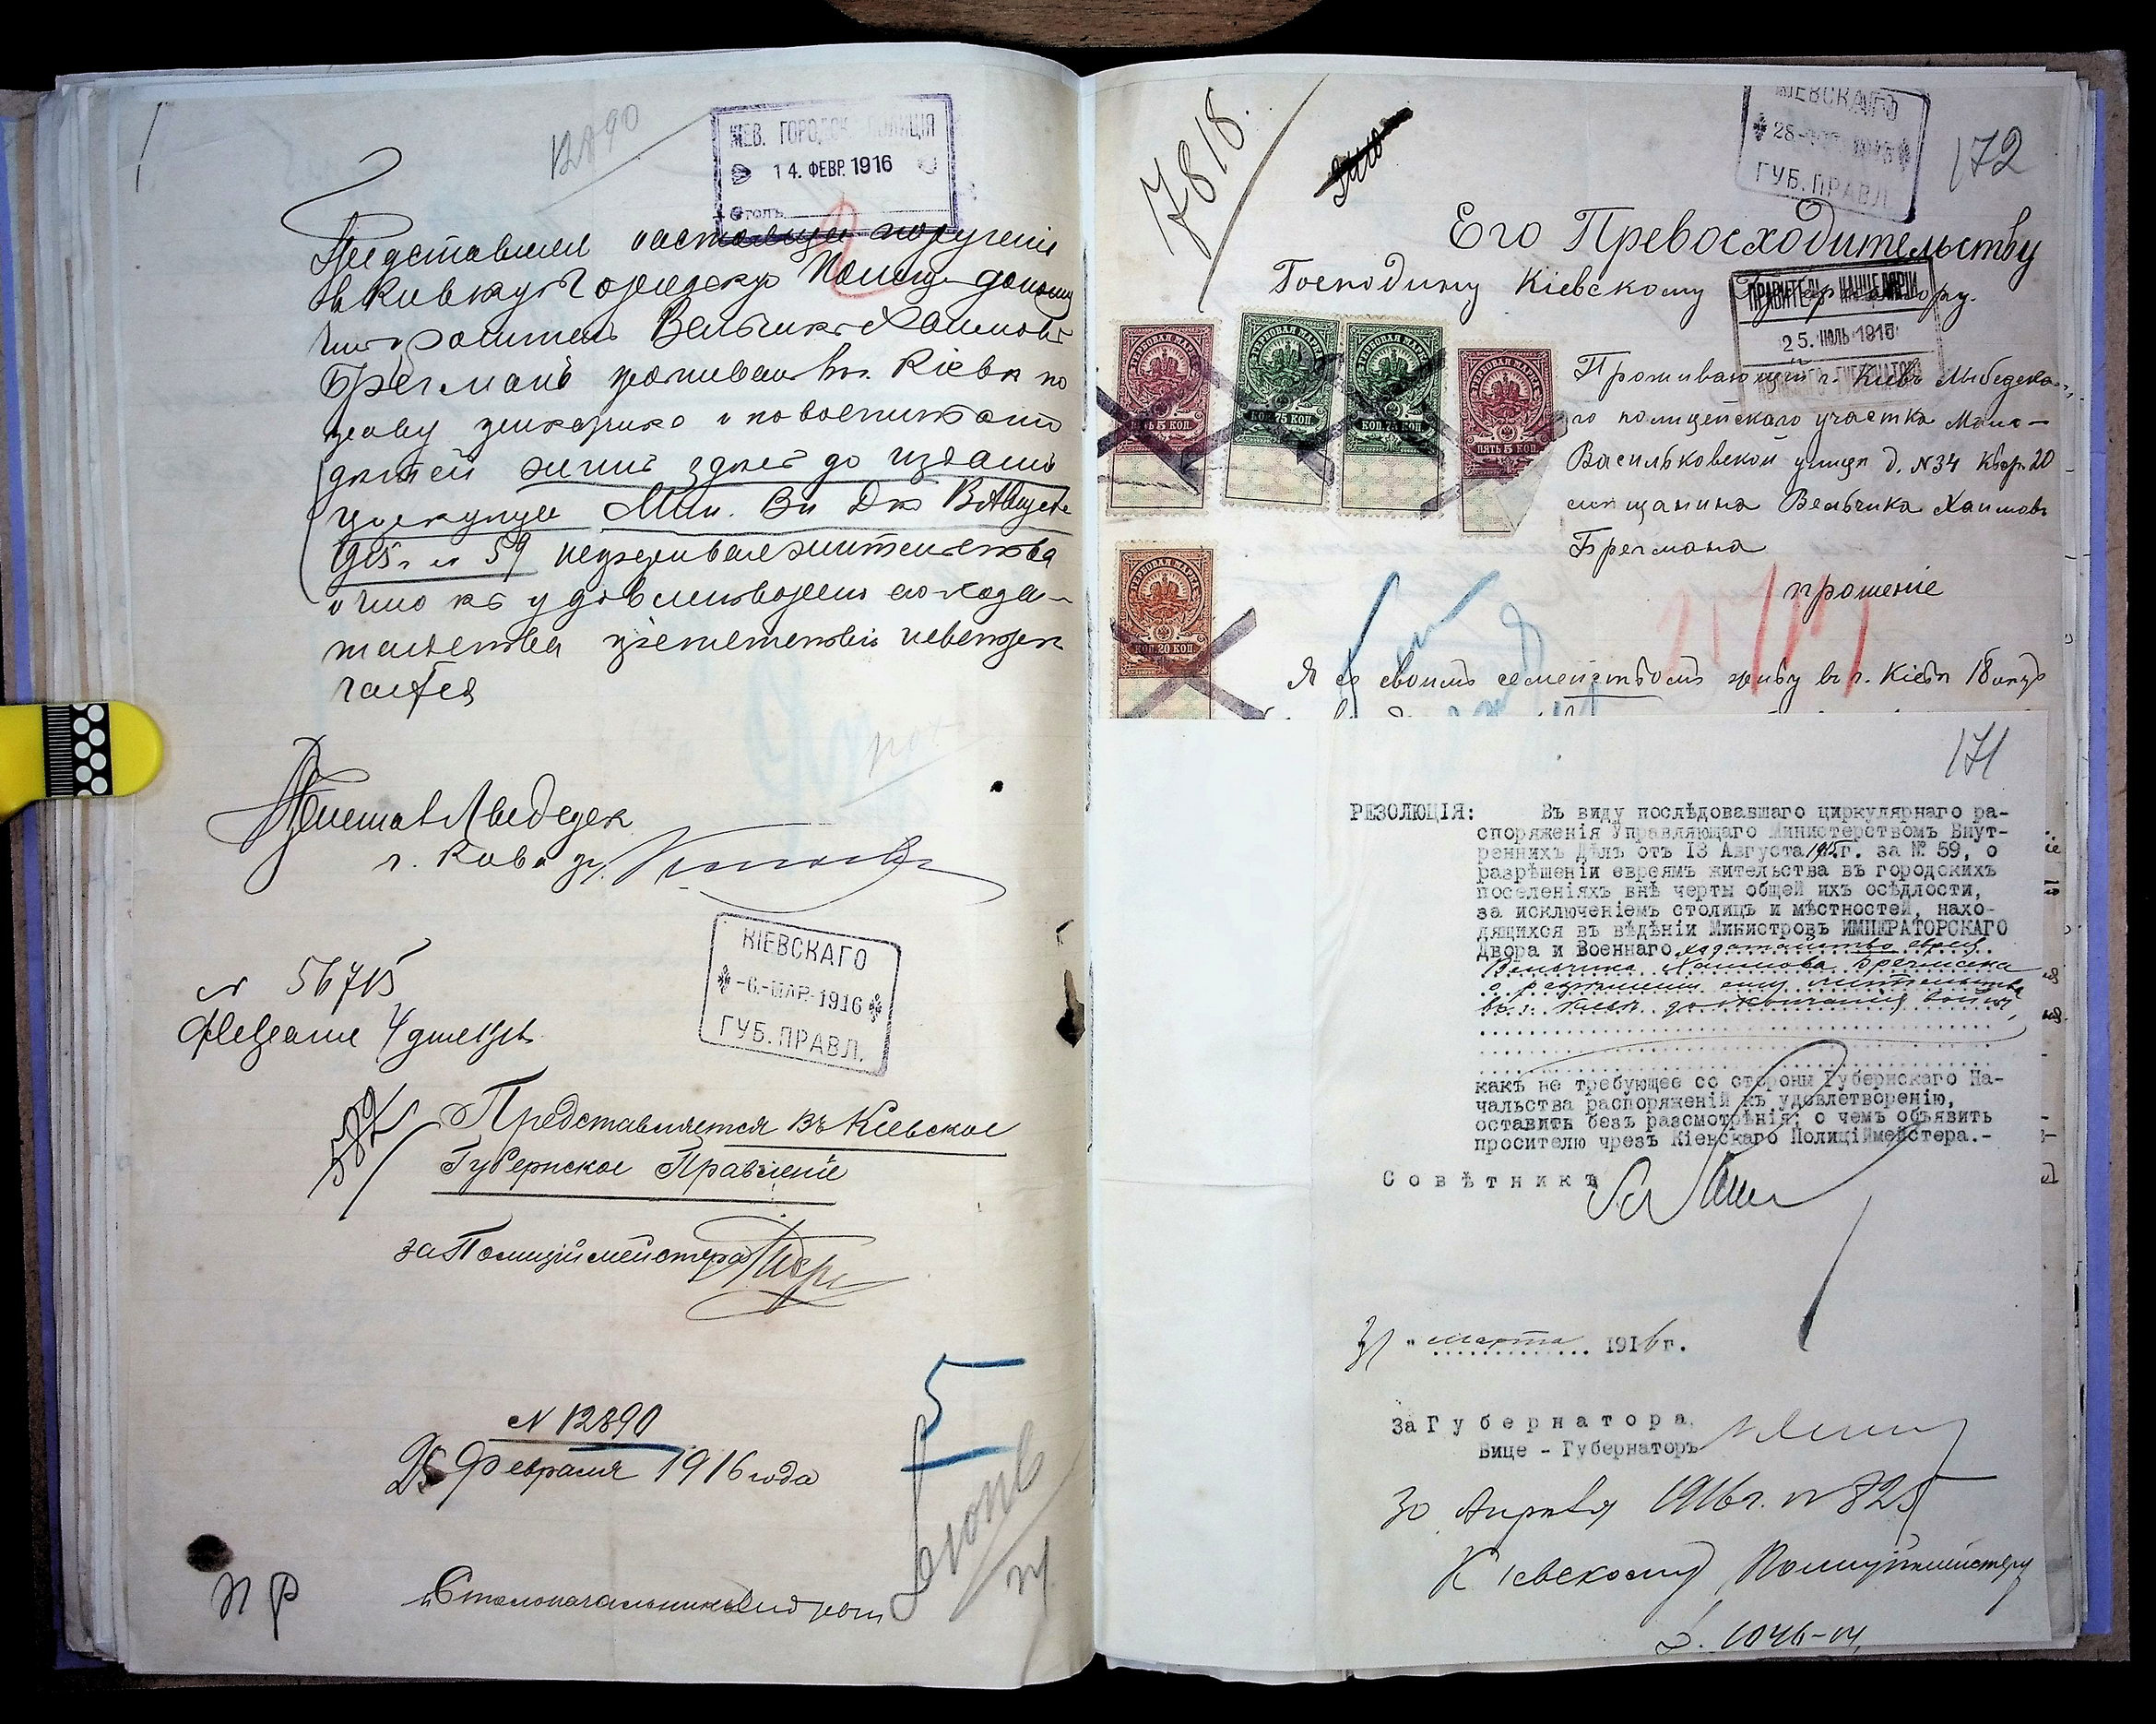 12890
КІЕВ. ГОРОДСК. ПОЛИЦІЯ
14. ФЕВР. 1916
Столъ
Представляя настоящую порученіе
въ Кіевскую Городскую Полицію доношу
что проситель Вельчикъ Хаимовъ
Брегманъ проживаетъ въ г. Кіевѣ по
праву и по воспитанію
дѣтей жилъ здѣсь до изданія
циркуляра Мин. Вн. Дѣл В Августа
1915 г № 59
и что къ удовлетворенію его хода-
тайства препятствій невстрѣ-
чается
Приставъ Лыбедск
г. Кіева
№ 56715
Февраля 4 дня
КІЕВСКАГО
-6.-МАР.-1916
ГУБ. ПРАВЛ.
Представляется въ Кіевское
Губернское Правленіе
за Полиціймейстера
N 12890
25 Февраля 1916 года
5
Столоначальникъ
17818.
КІЕВСКАГО
28
ГУБ. ПРАВЛ
172
Его Превосходительству
Господину Кіевскому Губернатору.
ПРАВИТЕЛЬ КАНЦЕЛЯРИИ
25. ІЮЛЬ 1915
КІЕВСКАГО ГУБЕРНАТОРА
ГЕРБОВАЯ МАРКА
ПЯТЬ 5 КОП.
ГЕРБОВАЯ МАРКА
КОП. 75 КОП.
ГЕРБОВАЯ МАРКА
КОП. 75 КОП.
ГЕРБОВАЯ МАРКА
ПЯТЬ 5 КОП.
ГЕРБОВАЯ МАРКА
КОП. 20 КОП.
Проживающій г. Кіевъ Лыбедска-
го полицейскаго участка Мало-
Васильковской улицы д. N 34 Квар. 20
мѣщанина Вельчика Хаимов
Брегмана
прошеніе
Я со своимъ семействомъ живу въ г. Кіевѣ 18
171
РЕЗОЛЮЦІЯ: Въ виду послѣдовавшаго циркулярнаго ра-
споряженія Управляющаго Министерствомъ Внут-
реннихъ Дѣлъ отъ 13 Августа 1915 г. за № 59, о
разрѣшеніи евреямъ жительства въ городскихъ
поселеніяхъ внѣ черты общей ихъ осѣдлости,
за исключеніемъ столицъ и мѣстностей, нахо-
дящихся въ вѣдѣніи Министровъ ИМПЕРАТОРСКАГО
Двора и Военнаго ходатайство еврея
Вельчика Хаимова Брегмана
о разрѣшеніи ему жительства
въ г. Кіевѣ до окончанія войны,
какъ не требующее со стороны Губернскаго На-
чальства распоряженій къ удовлетворенію,
оставить безъ разсмотрѣнія; о чемъ объявить
просителю чрезъ Кіевскаго Полиціймейстера.-
Совѣтникъ
31 " марта 1916 г.
За Губернатора,
Вице - Губернаторъ
30 Апрѣля 1916 г. № 825
Кіевскому Полиціймейстеру